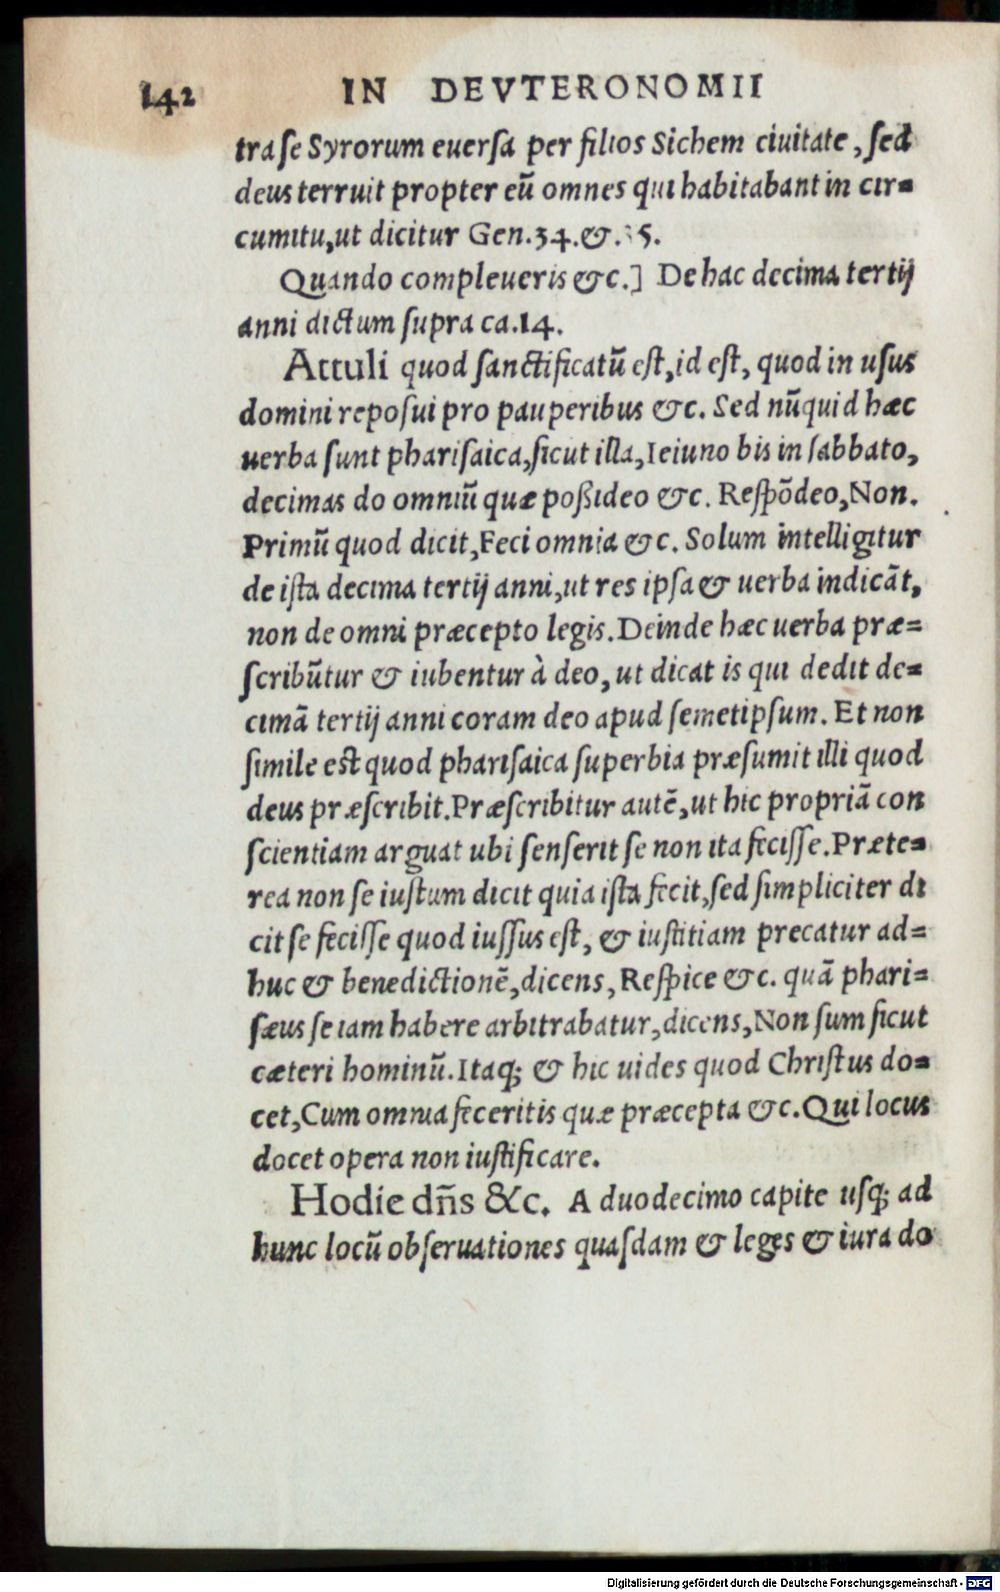 142 IN DEVTERONOMII
tra ſe Syrorum euerſa per filios Sichem ciuitate, ſed
deus terruit propter eũ omnes qui habitabant in cir=
cumitu, ut dicitur Gen. 34. &. 35.
Quando compleueris &c.] De hac decima tertij
anni dictum ſupra ca. 14.
Attuli quod ſanctificatũ eſt, id eſt, quod in uſus
domini repoſui pro pauperibus &c. Sed nũquid hæc
uerba ſunt phariſaica, ſicut illa, Ieiuno bis in ſabbato,
decimas do omniũ quæ poßideo &c. Reſpõdeo, Non.
Primũ quod dicit, Feci omnia &c. Solum intelligitur
de iſta decima tertij anni, ut res ipſa & uerba indicãt,
non de omni præcepto legis. Deinde hæc uerba præ=
ſcribũtur & iubentur à deo, ut dicat is qui dedit de=
cimã tertij anni coram deo apud ſemetipſum. Et non
ſimile est quod phariſaica ſuperbia præſumit illi quod
deus præſcribit. Præſcribitur autẽ, ut hic propriã con
ſcientiam arguat ubi ſenſerit ſe non ita feciſſe. Præte=
rea non ſe iuſtum dicit quia iſta fecit, ſed ſimpliciter di
cit ſe feciſſe quod iuſſus eſt, & iuſtitiam precatur ad=
huc & benedictionẽ, dicens, Reſpice &c. quã phari=
ſæus ſe iam habere arbitrabatur, dicens, Non ſum ſicut
cæteri hominũ. Itaq; & hic uides quod Chriſtus do=
cet, Cum omnia feceritis quæ præcepta &c. Qui locus
docet opera non iuſtificare.
Hodie dñs &c. A duodecimo capite uſq; ad
hunc locũ obſeruationes quaſdam & leges & iura do
Digitalisierung gefördert durch die Deutsche Forschungsgemeinschaft - DFG